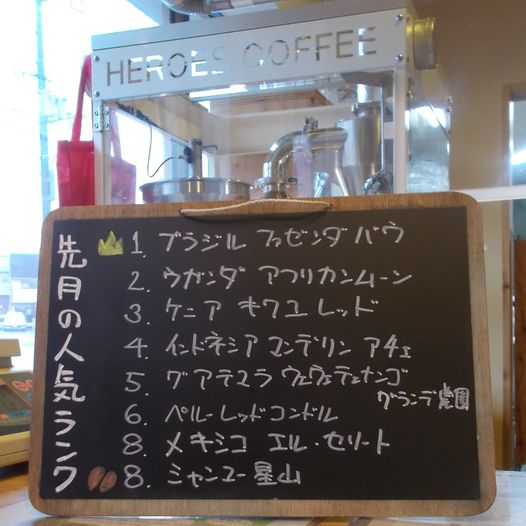 HEROES COFFEE
先月の人気ランク
1. ブラジル ファゼンダ バウ
2. ウガンダ アフリカンムーン
3. ケニア キクユ レッド
4. インドネシア マンデリン アチェ
5. グアテマラ ウェウェテェナンゴ
グランデ農園
6. ペルーレッドコンドル
8. メキシコ エル・セリート
8. ミャンマー星山